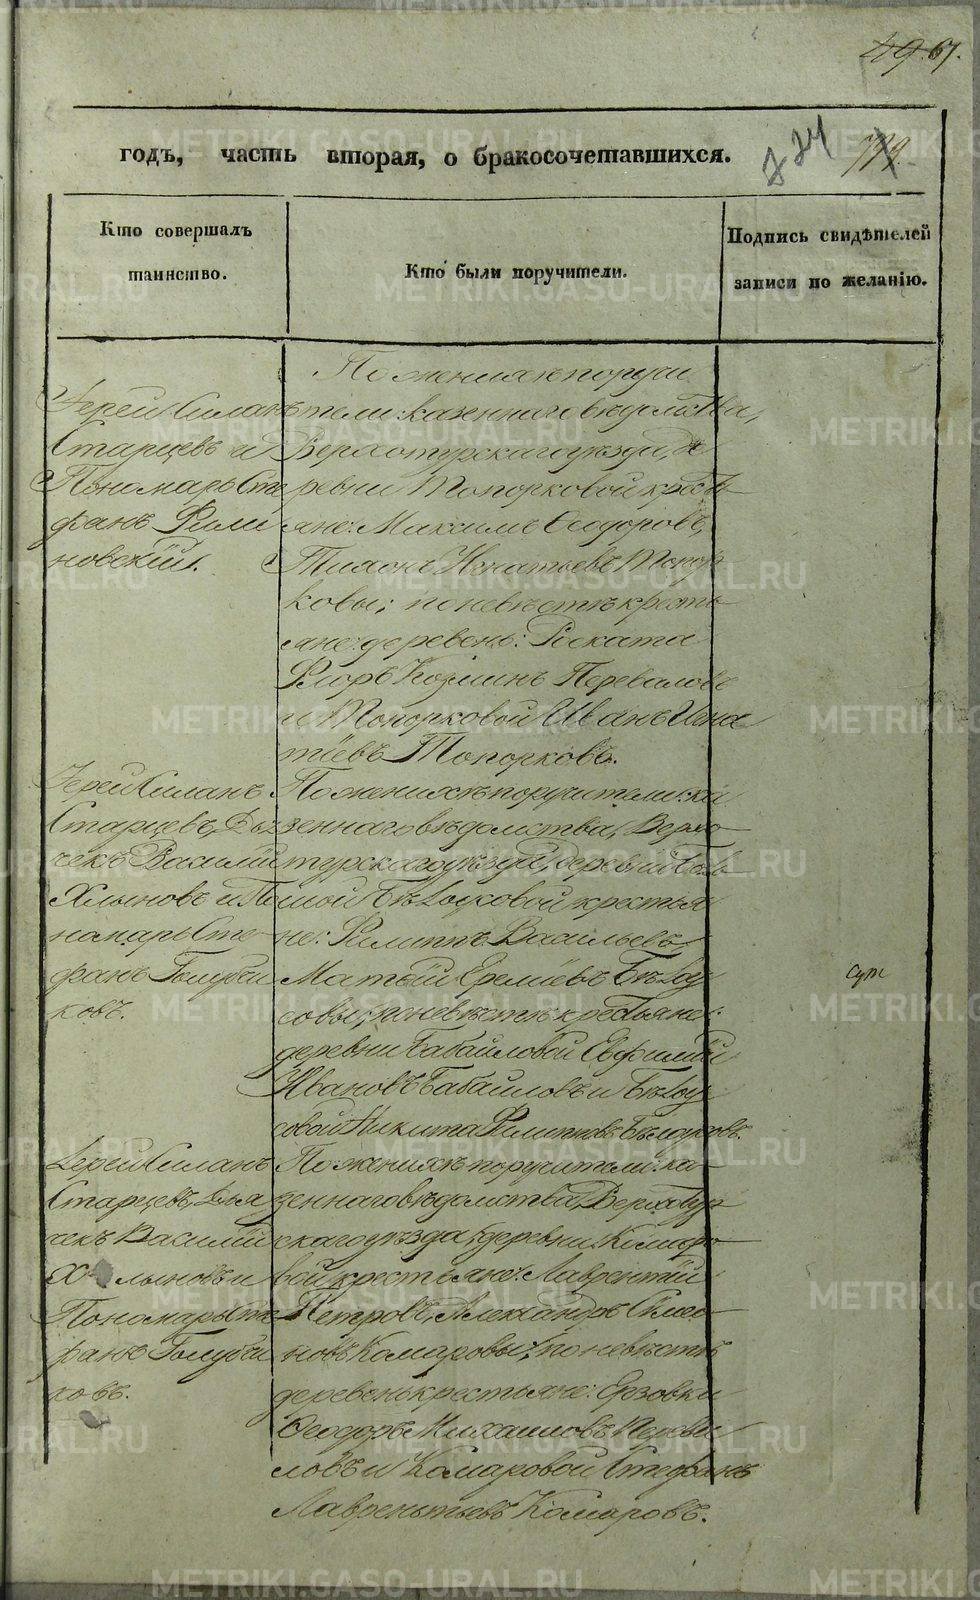 49. 61.
годъ, часть вторая, о бракосочетавшихся.
Кто совершалъ
таинство.
Кто были поручители.
Подпись свидѣтелей
записи по желанію.
Іерей Силанъ
Старцевъ и
Пономарь Сте
фанъ
новскій.
По женихѣ поручи
тели: казеннаго вѣдомства,
Верхотурскаго уѣзда, де
ревни Топорковой кресть
яне: Максимъ Ѳеодоровъ,
Тихонъ Игнатьевъ Топор
ковы; по невѣстѣ кресть
яне деревень: Раската
Флоръ Козминъ Переваловъ
и Топорковой Иванъ Игна
тіевъ Топорковъ.
Іерей Силанъ
Старцевъ, Дья
чекъ Василій
Хлыновъ и По
номарь Сте
фанъ Голубчи
ковъ.
По женихѣ поручители: ка
зеннаго вѣдомства, Верхо
турскаго уѣзда, деревни Боль
шой Бѣлоусовой крестья
не: Филиппъ Васильевъ,
Матѳій Еремѣевъ Бѣлоу
совы; по невѣстѣ крестьяне:
деревни Бабаиловой Евфимій
Ивановъ Бабаиловъ и Бѣлоу
совой Никита Филипповъ Бѣлоусовъ.
Іерей Силанъ
Старцевъ, Дья
чекъ Василій
Хлыновъ и
Пономарь Сте
фанъ Голубчи
ковъ.
По женихѣ поручители: ка
зеннаго вѣдомства, Верхотур
скаго уѣзда, деревни Комаро
вой крестьяне: Лаврентій
Петровъ, Александръ Симео
новъ Комаровы; по невѣстѣ
деревень крестьяне: Ерзовки
Ѳеодоръ Михаиловъ Перева
ловъ и Комаровой Стефанъ
Лаврентьевъ Комаровъ.
METRIKI.GASO-URAL.RU